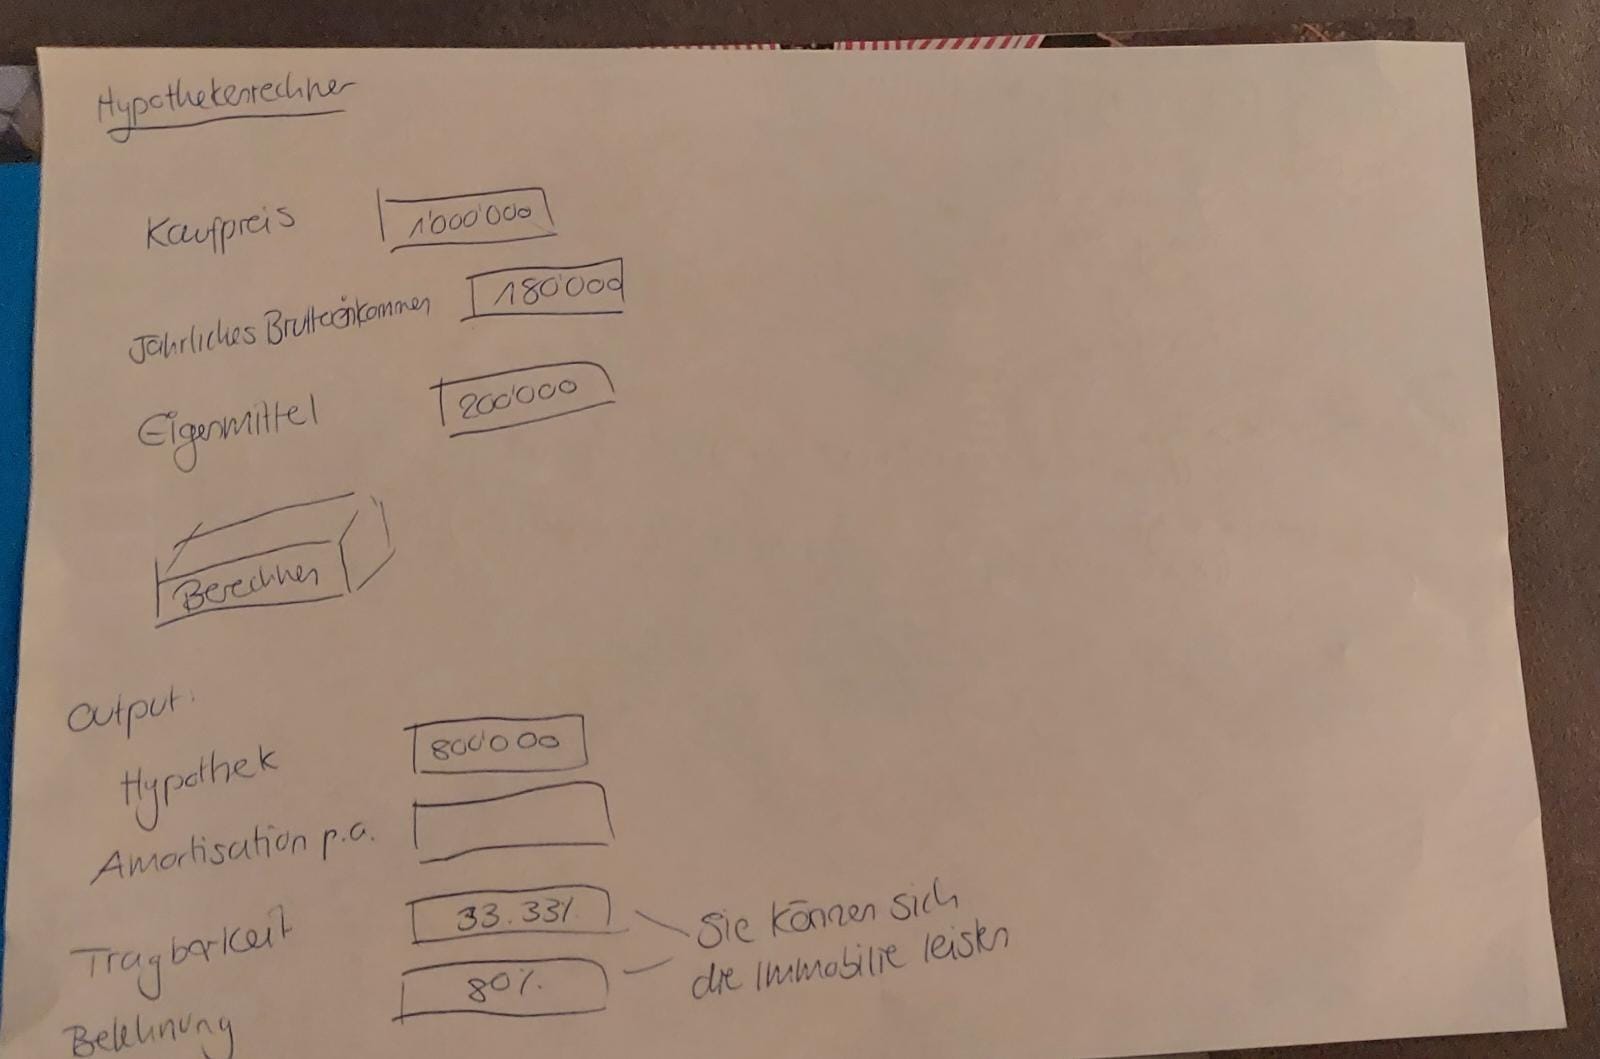 Hypothekenrechner
Kaufpreis 1'000'000
Jährliches Bruttoeinkommen 180'000
Eigenmittel 200'000
Berechnen
Output:
Hypothek 800'000
Amortisation p.a.
Tragbarkeit 33.33%
Sie können sich
die Immobilie leisten
Belehnung 80%